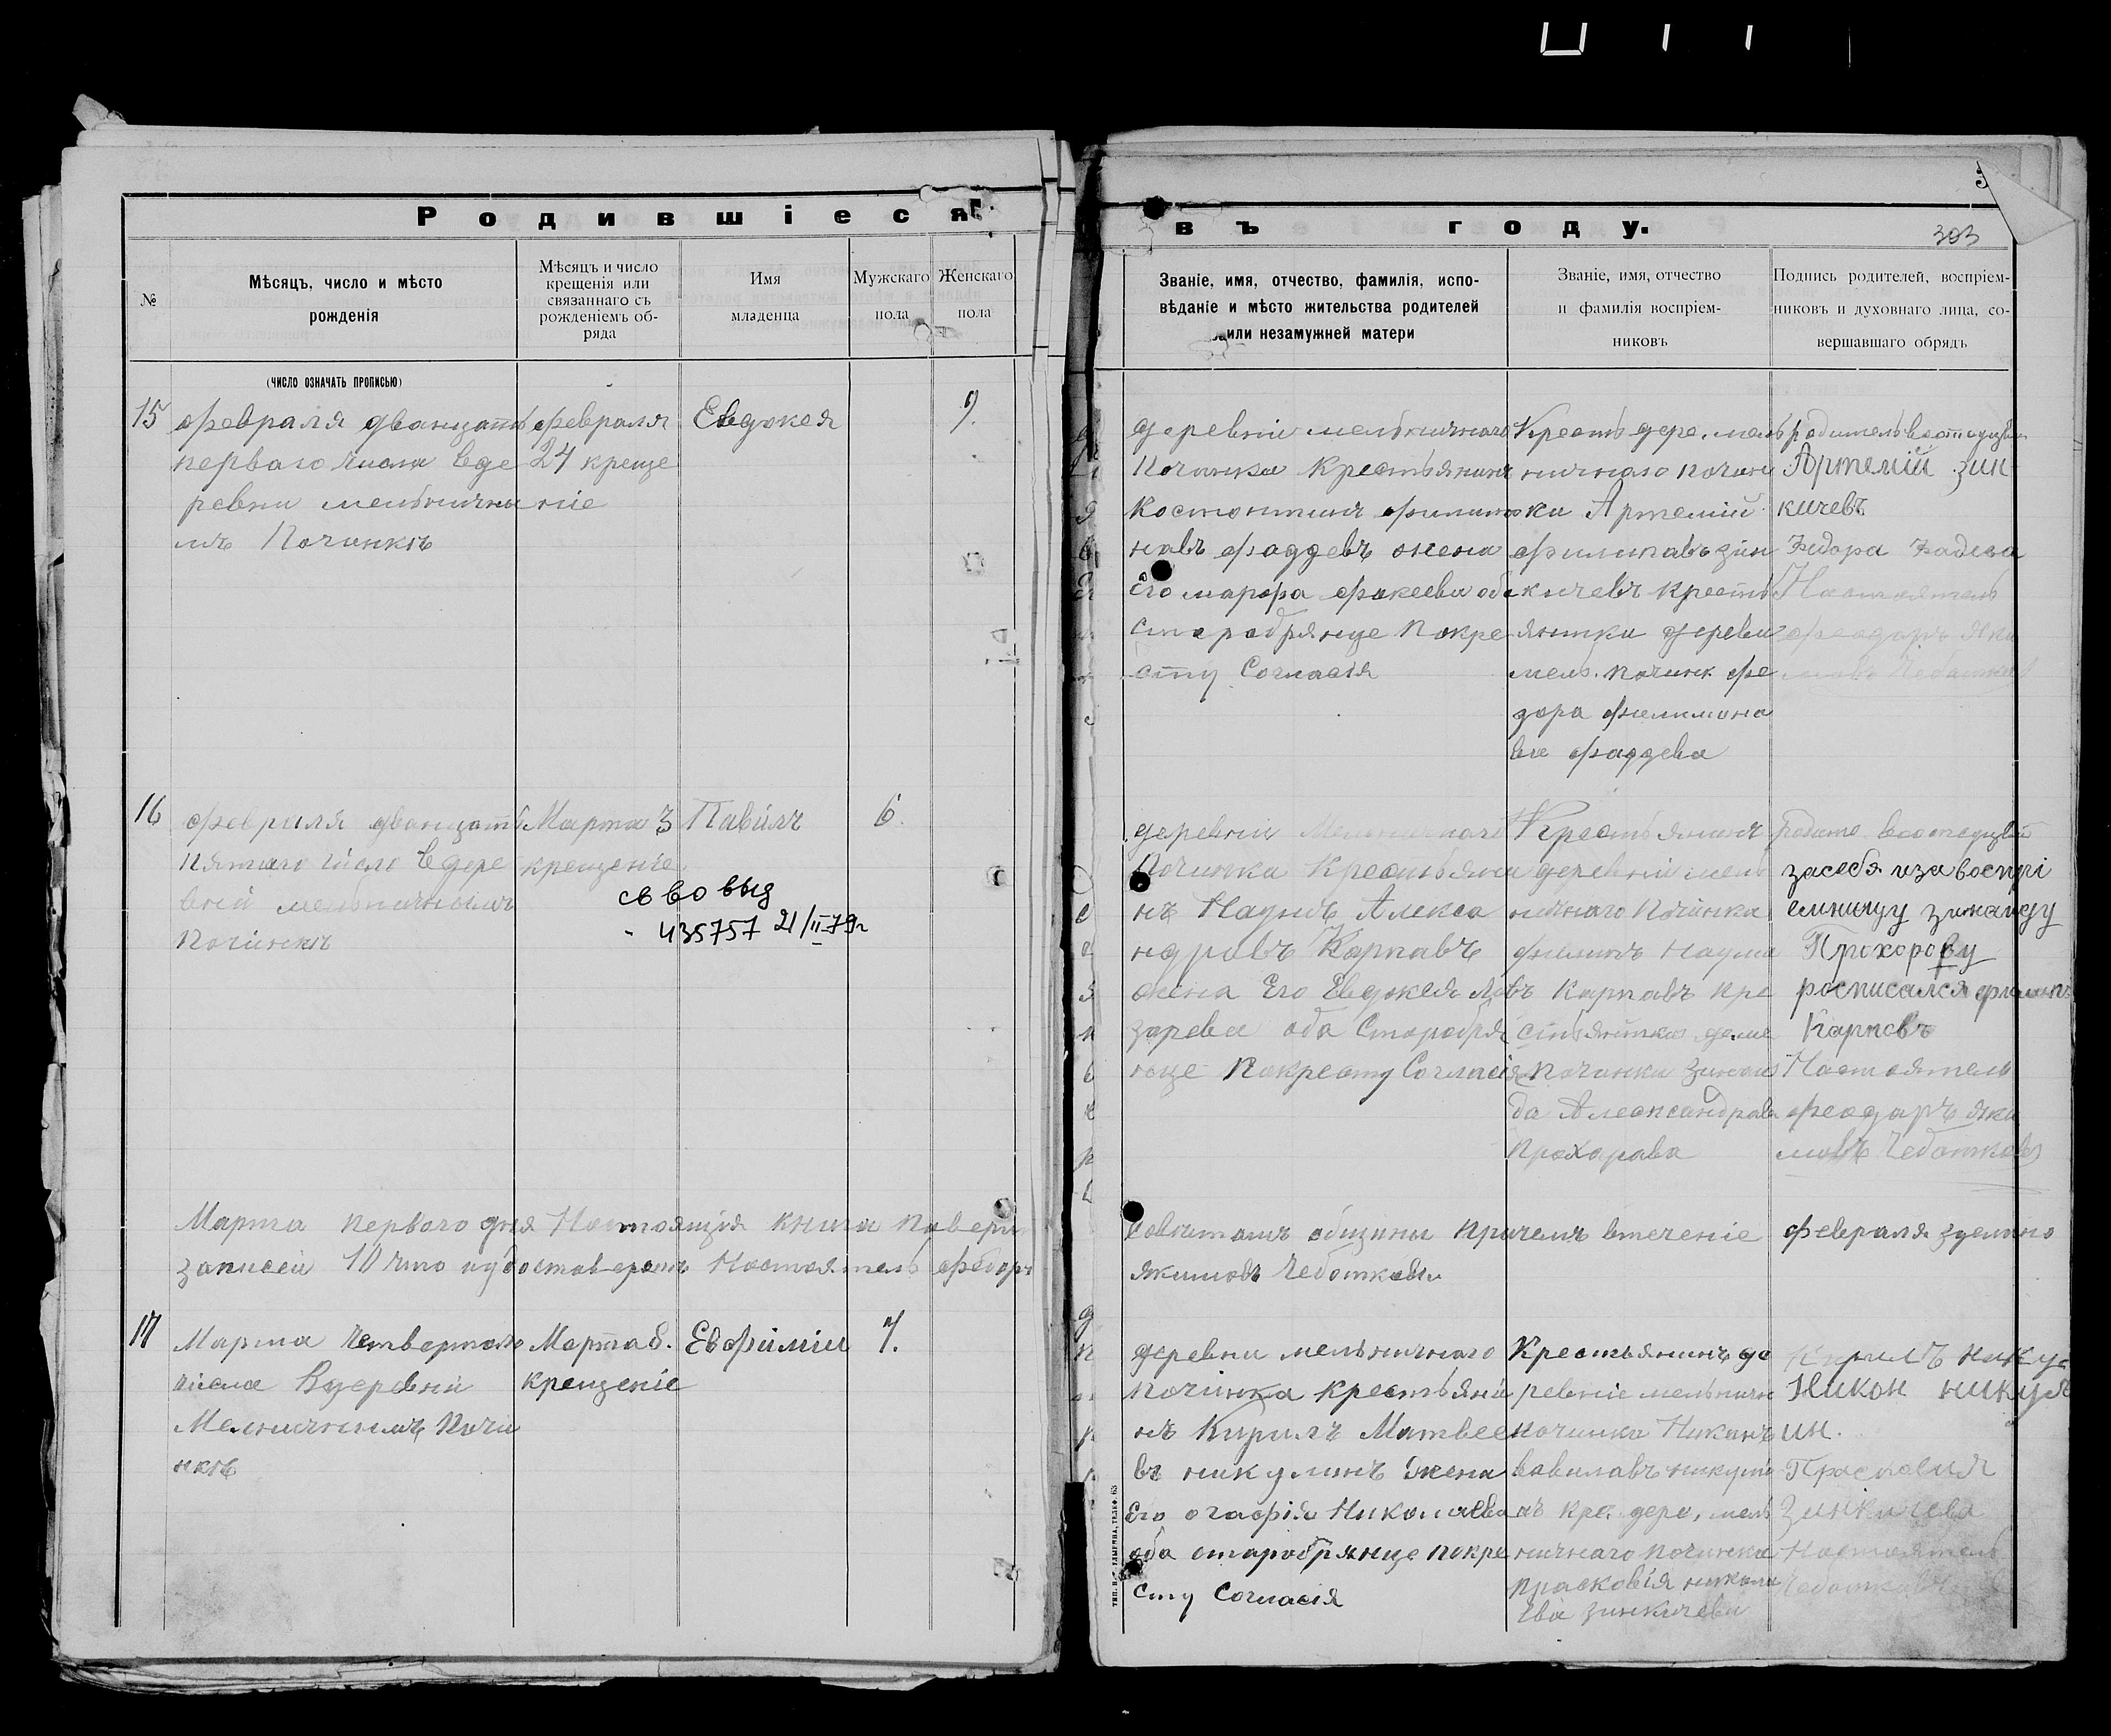 Родившіеся
въ году.
303
№
Мѣсяцъ, число и мѣсто
рожденія
Мѣсяцъ и число
крещенія или
связаннаго съ
рожденіемъ об-
ряда
Имя
младенца
Мужскаго
пола
Женскаго
пола
Званіе, имя, отчество, фамилія, испо-
вѣданіе и мѣсто жительства родителей
или незамужней матери
Званіе, имя, отчество
и фамилія воспріем-
никовъ
Подпись родителей, воспріем-
никовъ и духовнаго лица, со-
вершавшаго обрядъ
(число означать прописью)
15
февраля дванцать
перваго числа вде
ревни мельничны
мъ Починкъ
февраля
24 креще
ніе
Евдокея
9.
деревніи мельничнаго
Починка Крестьянинъ
Костонтинъ филимо
навъ фаддевъ жена
Его марфа фокеева оба
старобрянце покре
сту Согласія
Кресть дере. мель
ничнаго почин
ка Артемій
филипавъ зин
кичевъ кресть
янитка деревн
мель. почин. фе
дора филимона
ва фаддева
Артемій зин
кичевъ
Федора Фадева
Настоятель
феодаръ яки
мовъ Чеботковъ
16
февраля дванцать
пятаго число вдере
вній мельничнымъ
Починкъ
Марта 3
крещеніе
Павилъ
6.
св во выд
- 435757 21/II-79г
деревніи Мельничнаго
Починка Крестьяни
нъ Наумъ Алекса
ндравъ Карпавъ
жена Его Евдокея Ла
зарева оба Старобря
нце Покресту Согласія
Крестьянинъ
деревніи мель
ничнаго Починка
филипъ Наума
въ Карпавъ кре
стьянитка дер. ме
починка Зинаи
да Александрава
Прохарава
засебя изавоспрі
емницу зинаиду
Прохорову
росписался филипъ
Карповъ
Настоятель
феодаръ яки
мовъ Чеботковъ
Марта первого дня Настоящія книга паверин
Советамъ общины причемъ втеченіе февраля зделано
записей 10 что иудостоверяетъ Настоятель федоръ
якимовъ Чеботковъ
17
Марта четвертаго
числа Вдеревніи
Мелничнымъ Почи
нкъ
Марта 8.
крещеніе
Евфиміи
7.
деревни мельничнаго
починка крестьяни
нъ Кирилъ Матвее
въ никулинъ жена
Его огафія Николаева
оба старобрянце покре
сту согласія
Крестьянинъ де
ревніе мельничн
починка Никанъ
вавилавъ никули
нъ кре. дере. мель
ничнаго починка
прасковія никола
ева зинкичева
Кирилъ никул
Никон никул
ин.
Прасковия
Зинкичева
Настоятель
Чеботковъ